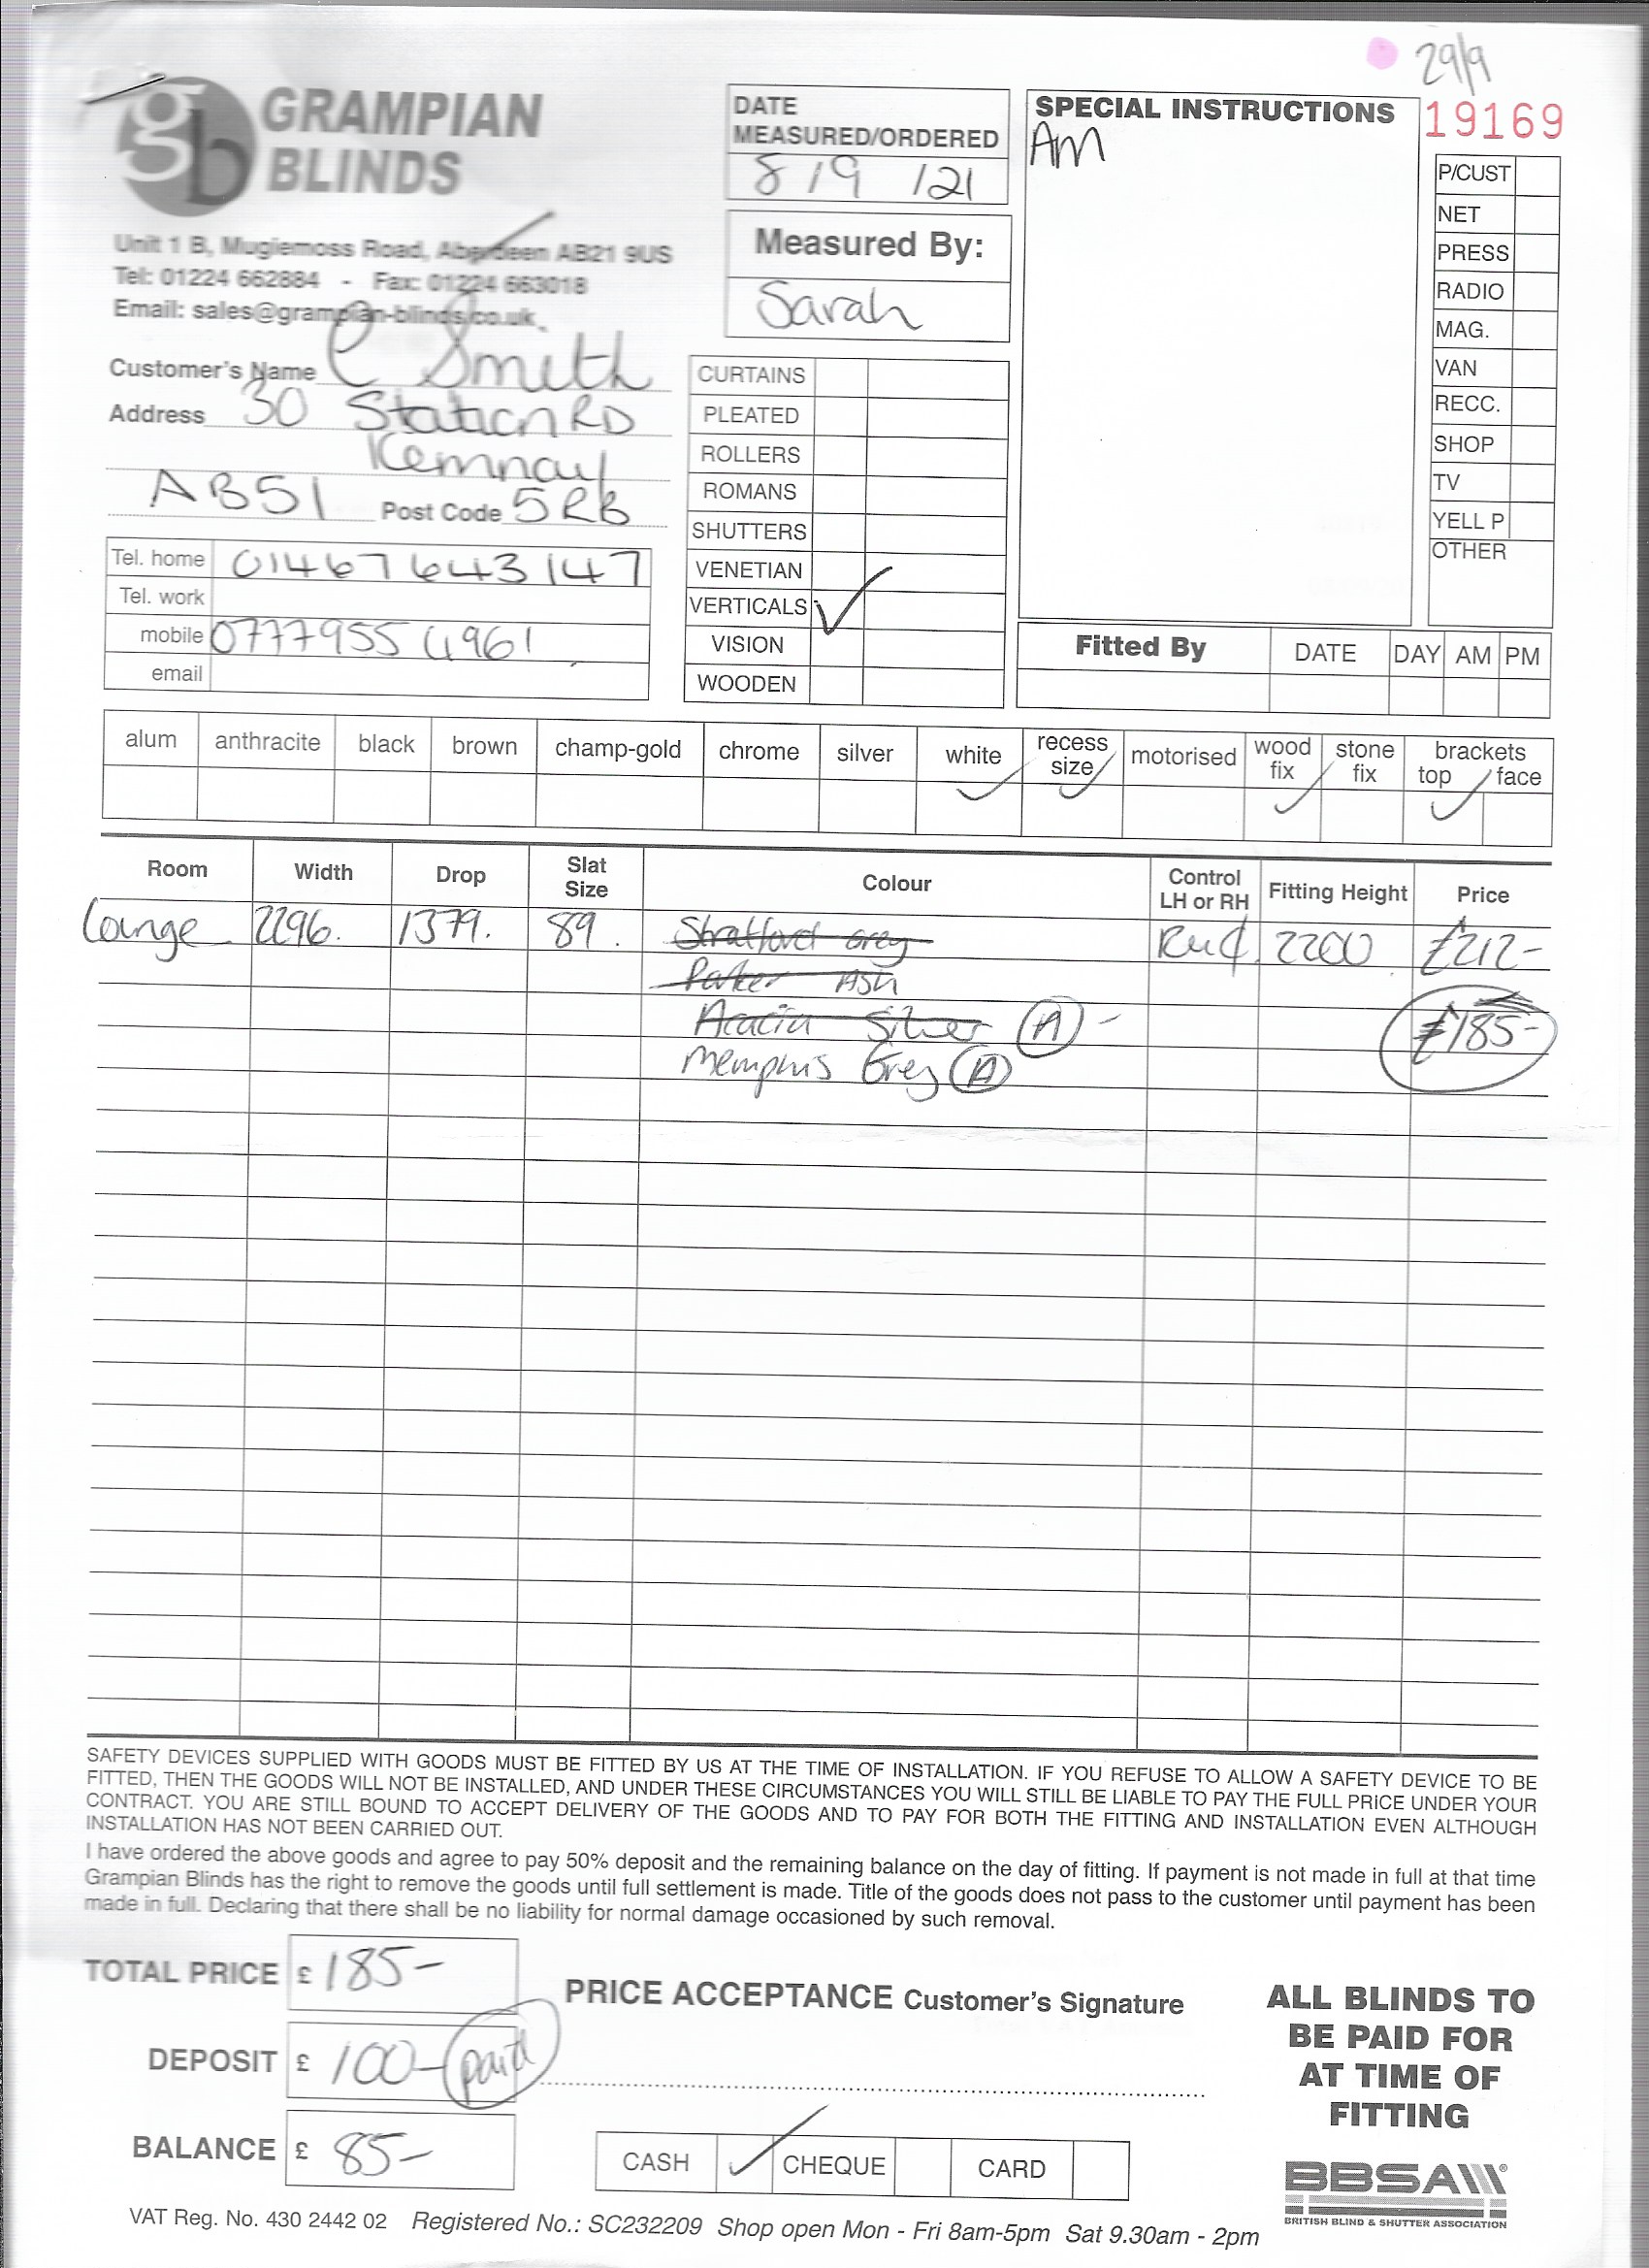 29/9
GRAMPIAN
BLINDS
gb
Unit 1 B, Mugiemoss Road, Aberdeen AB21 9US
Tel: 01224 662884 - Fax: 01224 663018
Email: sales@grampian-blinds.co.uk
DATE
MEASURED/ORDERED
8/9/21
Measured By:
Sarah
SPECIAL INSTRUCTIONS
AM
19169
P/CUST
NET
PRESS
RADIO
MAG.
VAN
RECC.
SHOP
TV
YELL P
OTHER
Customer's Name C Smith
Address 30 Station RD
Kemnay
AB51 Post Code 5RB
Tel. home 01467 643147
Tel. work
mobile 0777955 4961
email
CURTAINS
PLEATED
ROLLERS
ROMANS
SHUTTERS
VENETIAN
VERTICALS ✓
VISION
WOODEN
Fitted By DATE DAY AM PM
alum anthracite black brown champ-gold chrome silver white ✓ recess size ✓ motorised wood fix ✓ stone fix brackets top ✓ / face
Room Width Drop Slat Size Colour Control LH or RH Fitting Height Price
Lounge 2296. 1379. 89. Stratford Grey 2200 £212-
Parker Ash
Acacia Silver (A) - £185-
Memphis Grey (A)
SAFETY DEVICES SUPPLIED WITH GOODS MUST BE FITTED BY US AT THE TIME OF INSTALLATION. IF YOU REFUSE TO ALLOW A SAFETY DEVICE TO BE
FITTED, THEN THE GOODS WILL NOT BE INSTALLED, AND UNDER THESE CIRCUMSTANCES YOU WILL STILL BE LIABLE TO PAY THE FULL PRICE UNDER YOUR
CONTRACT. YOU ARE STILL BOUND TO ACCEPT DELIVERY OF THE GOODS AND TO PAY FOR BOTH THE FITTING AND INSTALLATION EVEN ALTHOUGH
INSTALLATION HAS NOT BEEN CARRIED OUT.
I have ordered the above goods and agree to pay 50% deposit and the remaining balance on the day of fitting. If payment is not made in full at that time
Grampian Blinds has the right to remove the goods until full settlement is made. Title of the goods does not pass to the customer until payment has been
made in full. Declaring that there shall be no liability for normal damage occasioned by such removal.
TOTAL PRICE £ 185-
DEPOSIT £ 100- paid
BALANCE £ 85-
PRICE ACCEPTANCE Customer's Signature
CASH ✓ CHEQUE CARD
ALL BLINDS TO
BE PAID FOR
AT TIME OF
FITTING
BBSA
BRITISH BLIND & SHUTTER ASSOCIATION
VAT Reg. No. 430 2442 02 Registered No.: SC232209 Shop open Mon - Fri 8am-5pm Sat 9.30am - 2pm